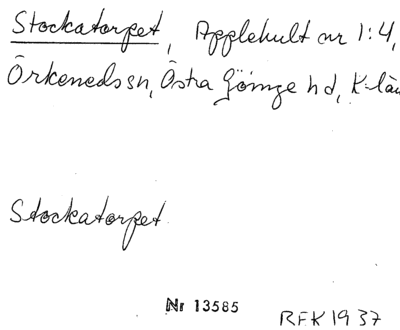 Stockatorpet, Applehult nr 1:4,
Örkeneds sn, Östra Göinge hd, K-län
Stockatorpet
Nr 13585
REK 1937